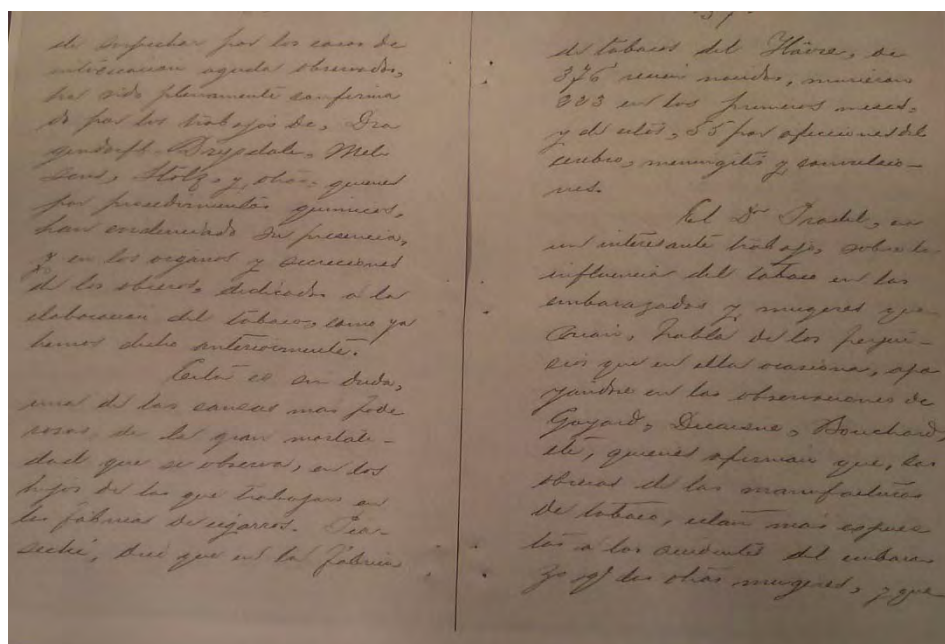 de sospechar por los casos de
intoxicacion aguda observados,
ha sido plenamente confirma
do por los trabajos de, Dra
gendorff. Drysdale, Mel
sens, Stolz, y otros, quienes
por procedimientos quimicos,
han evidenciado su presencia,
y en los organos y secreciones
de los obreros, dedicados a la
elaboracion del tabaco, como ya
hemos dicho anteriormente.
Esta es sin duda,
una de las causas mas pode
rosas, de la gran mortali-
dad que se observa, en los
hijos de las que trabajan en
las fabricas de cigarros.
dice que en la fabrica
de tabacos del Hâvre, de
376 recien nacidos, murieron
en los primeros meses,
y de estos, 55 por afecciones del
cerebro, meningitis y convulsio-
nes.
El Dr en
un interesante trabajo, sobre la
influencia del tabaco en las
embarazadas y mugeres que
crian, habla de los perjui-
cios que en ella ocasiona, apo
yandose en las observaciones de
Goyard, Decaisne, Bouchard,
etc, quienes afirman que, las
obreras de las manufacturas
de tabaco, estan mas espues
tas a los accidentes del embara
zo qe las otras mugeres, y que